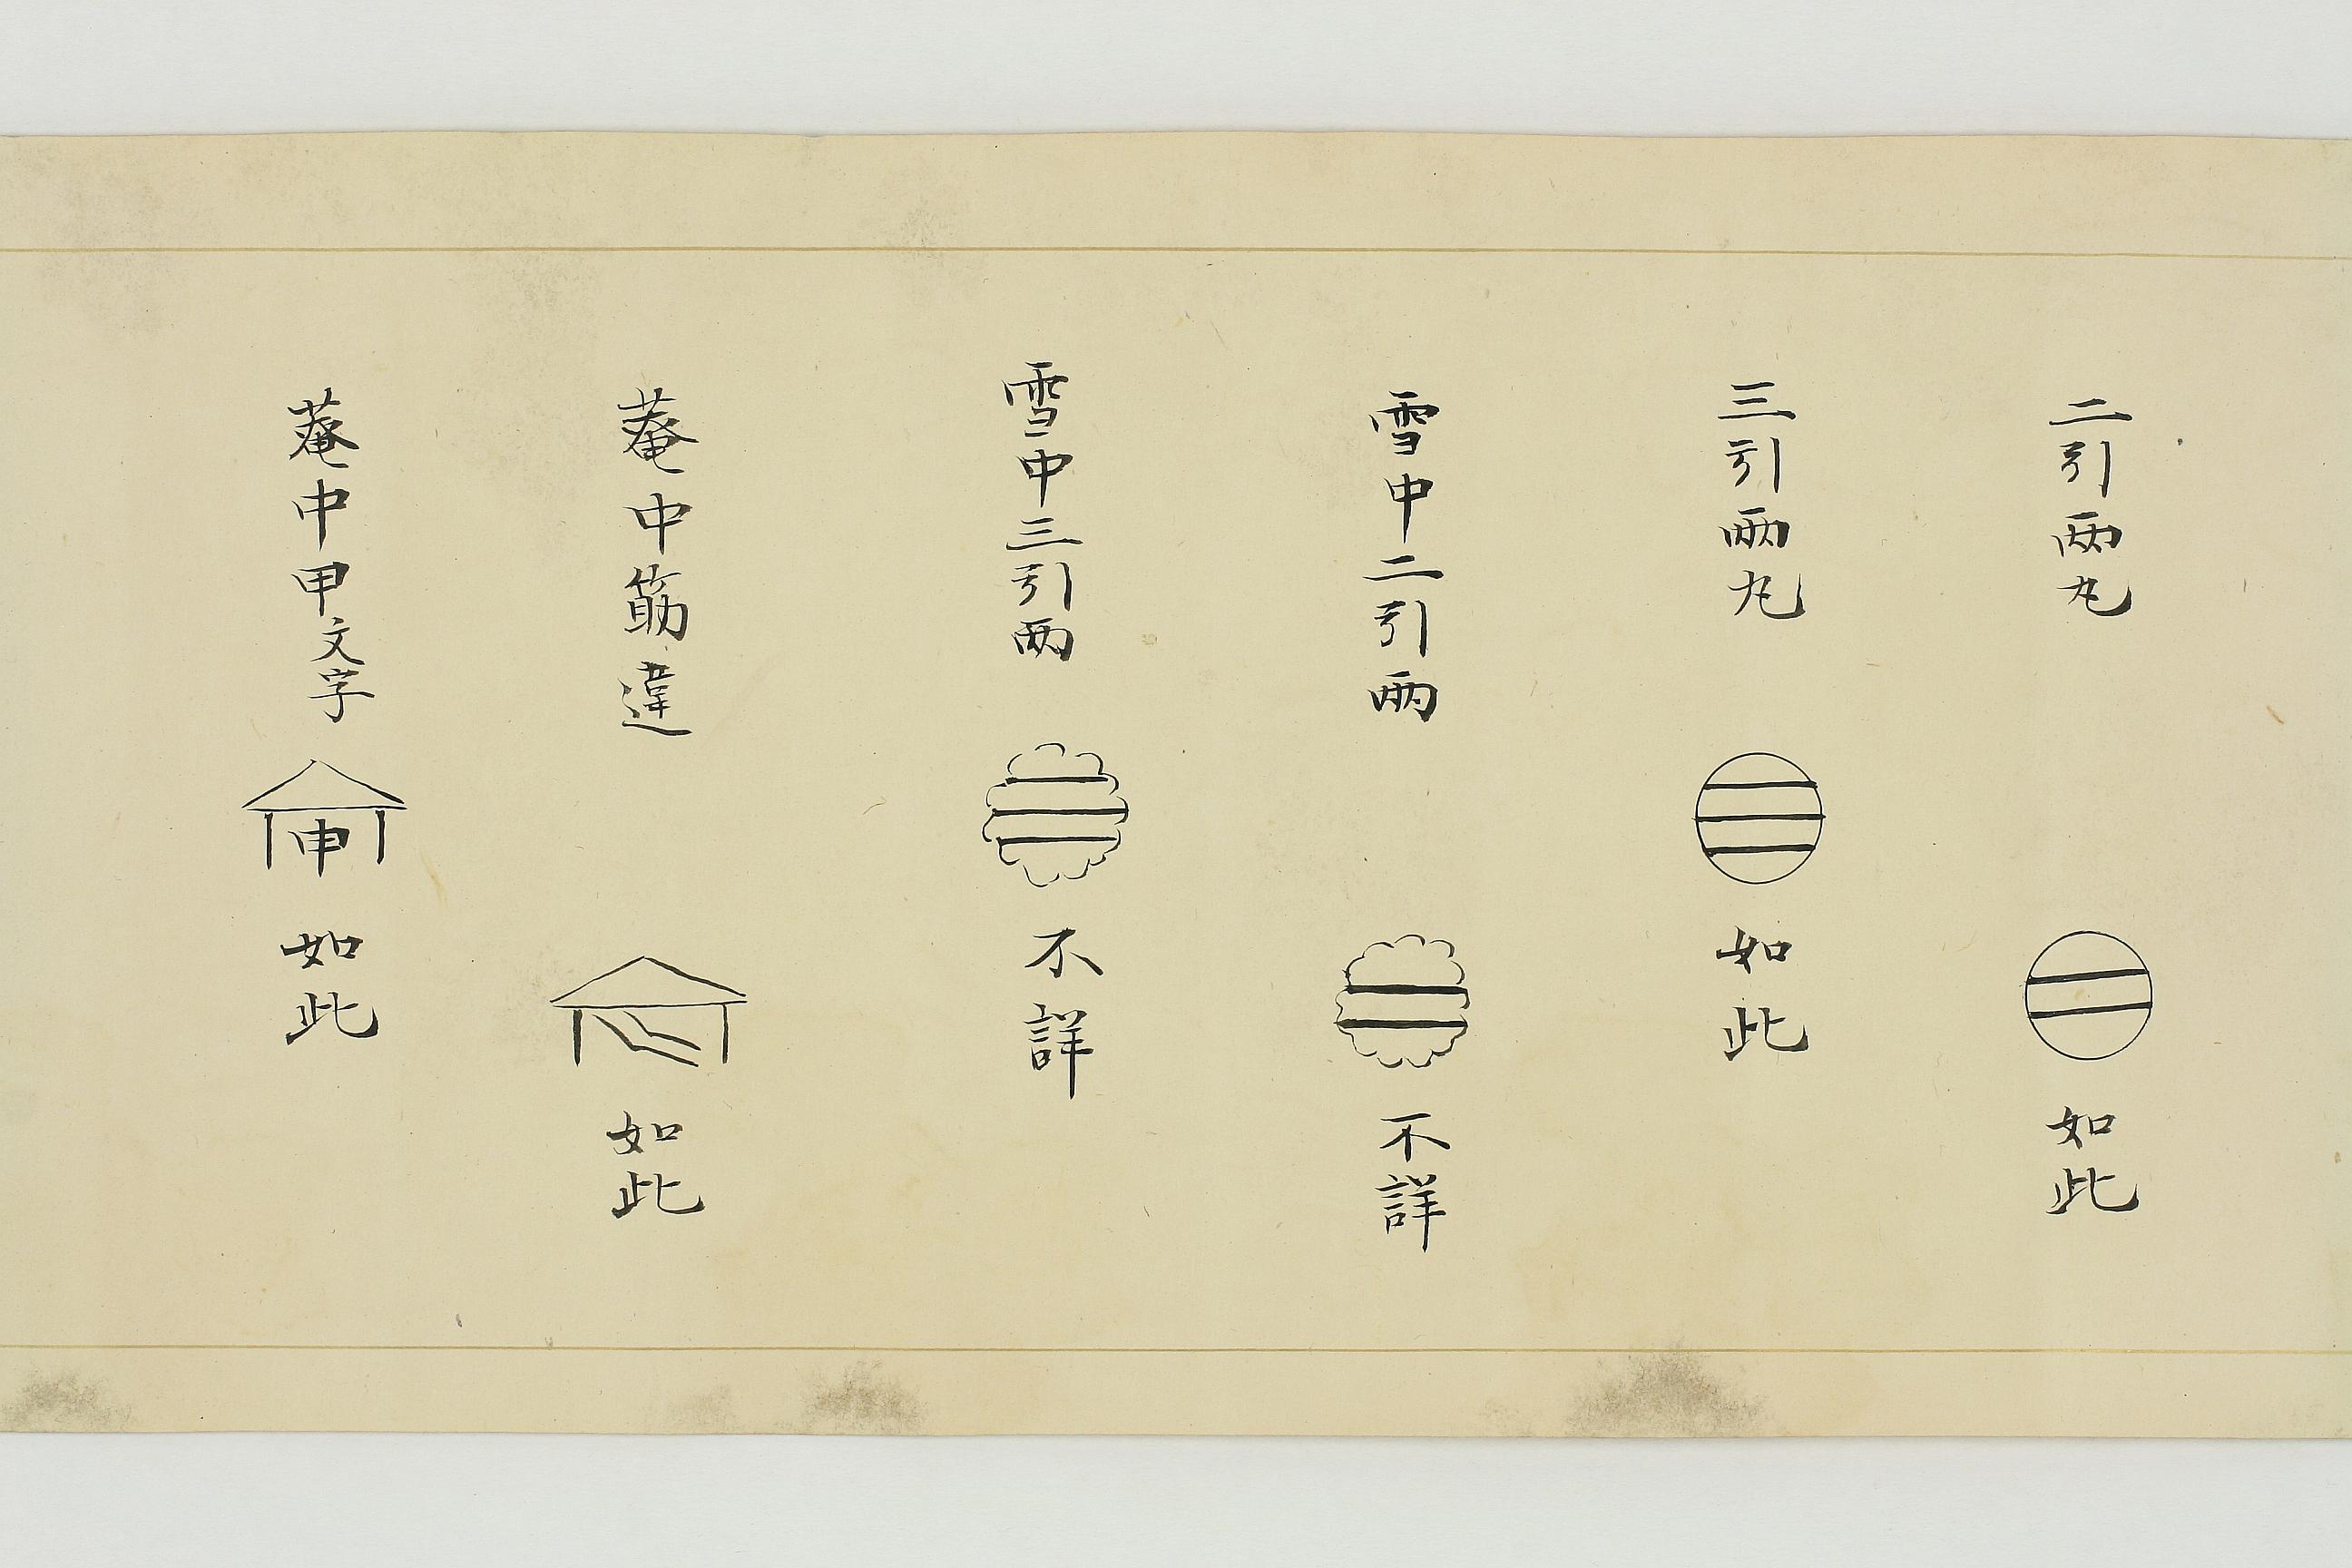 二引両丸 如此
三引両丸 如此
雪中二引両 不詳
雪中三引両 不詳
菴中筋違 如此
菴中甲文字 申 如此